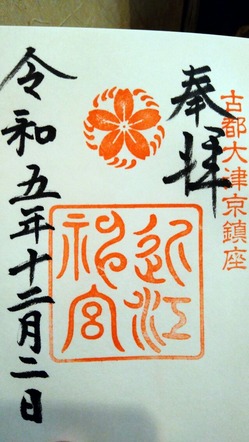 古都大津京鎮座
奉拝
近江
神宮
令和五年十二月二日